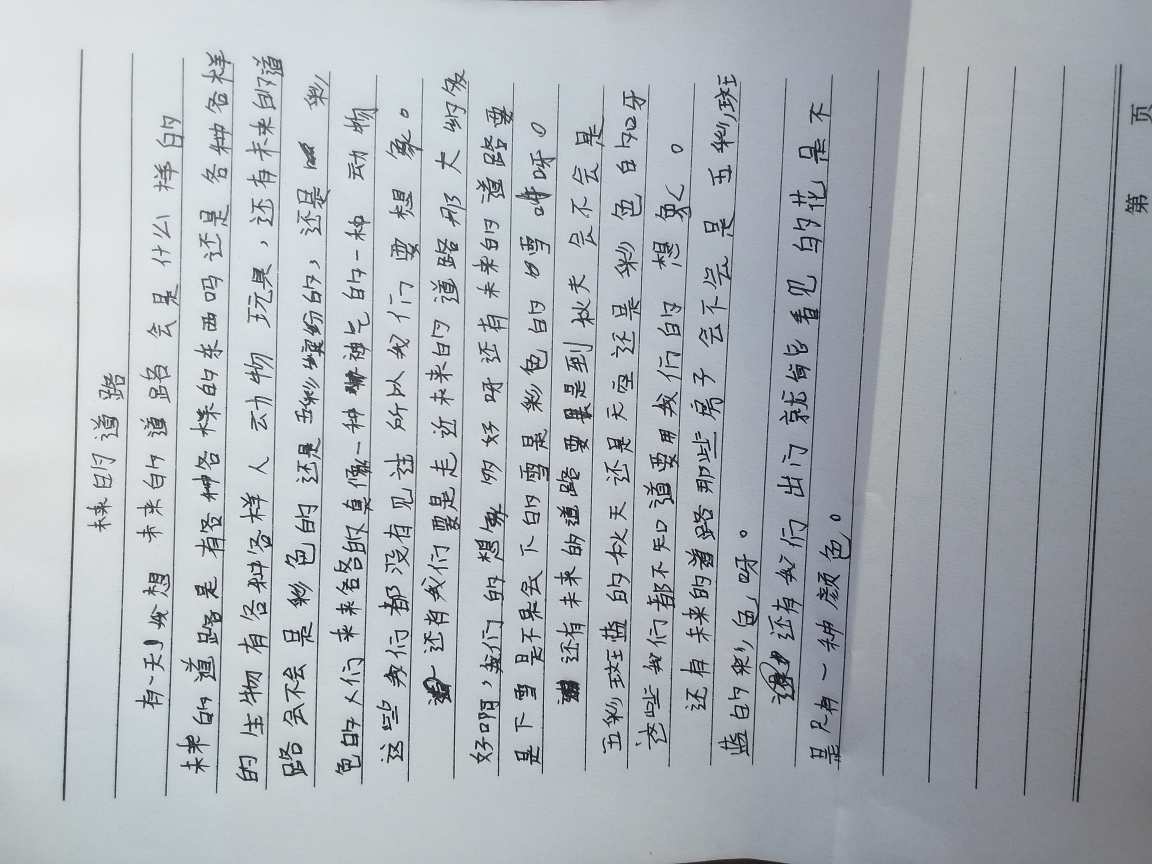 未来的道路
有一天我想 未来的道路会是什么样的
未来的道路是有各种各样的东西吗还是各种各样
的生物有各种各样人动物玩具,还有未来的道
路会不会是彩色的还是五彩缤纷的,还是彩
色的人们未来各的真像一种神气的一种动物
这些我们都没有见过所以我们要想象。
还有我们要是走近未来的道路那大的多
好啊,我们的想象多好呀还有未来的道路要
是下雪是不是会下的雪是彩色的雪呀。
还有未来的道路要是到秋天会不会是
五彩斑蓝的秋天还是天空还是彩色的和牙
这些我们都不知道要用我们的想象。
还有未来的道路那些房子会不会是五彩斑
蓝的彩色呀。
还有我们出门就能看见的花是不
是只有一种颜色。
第 页